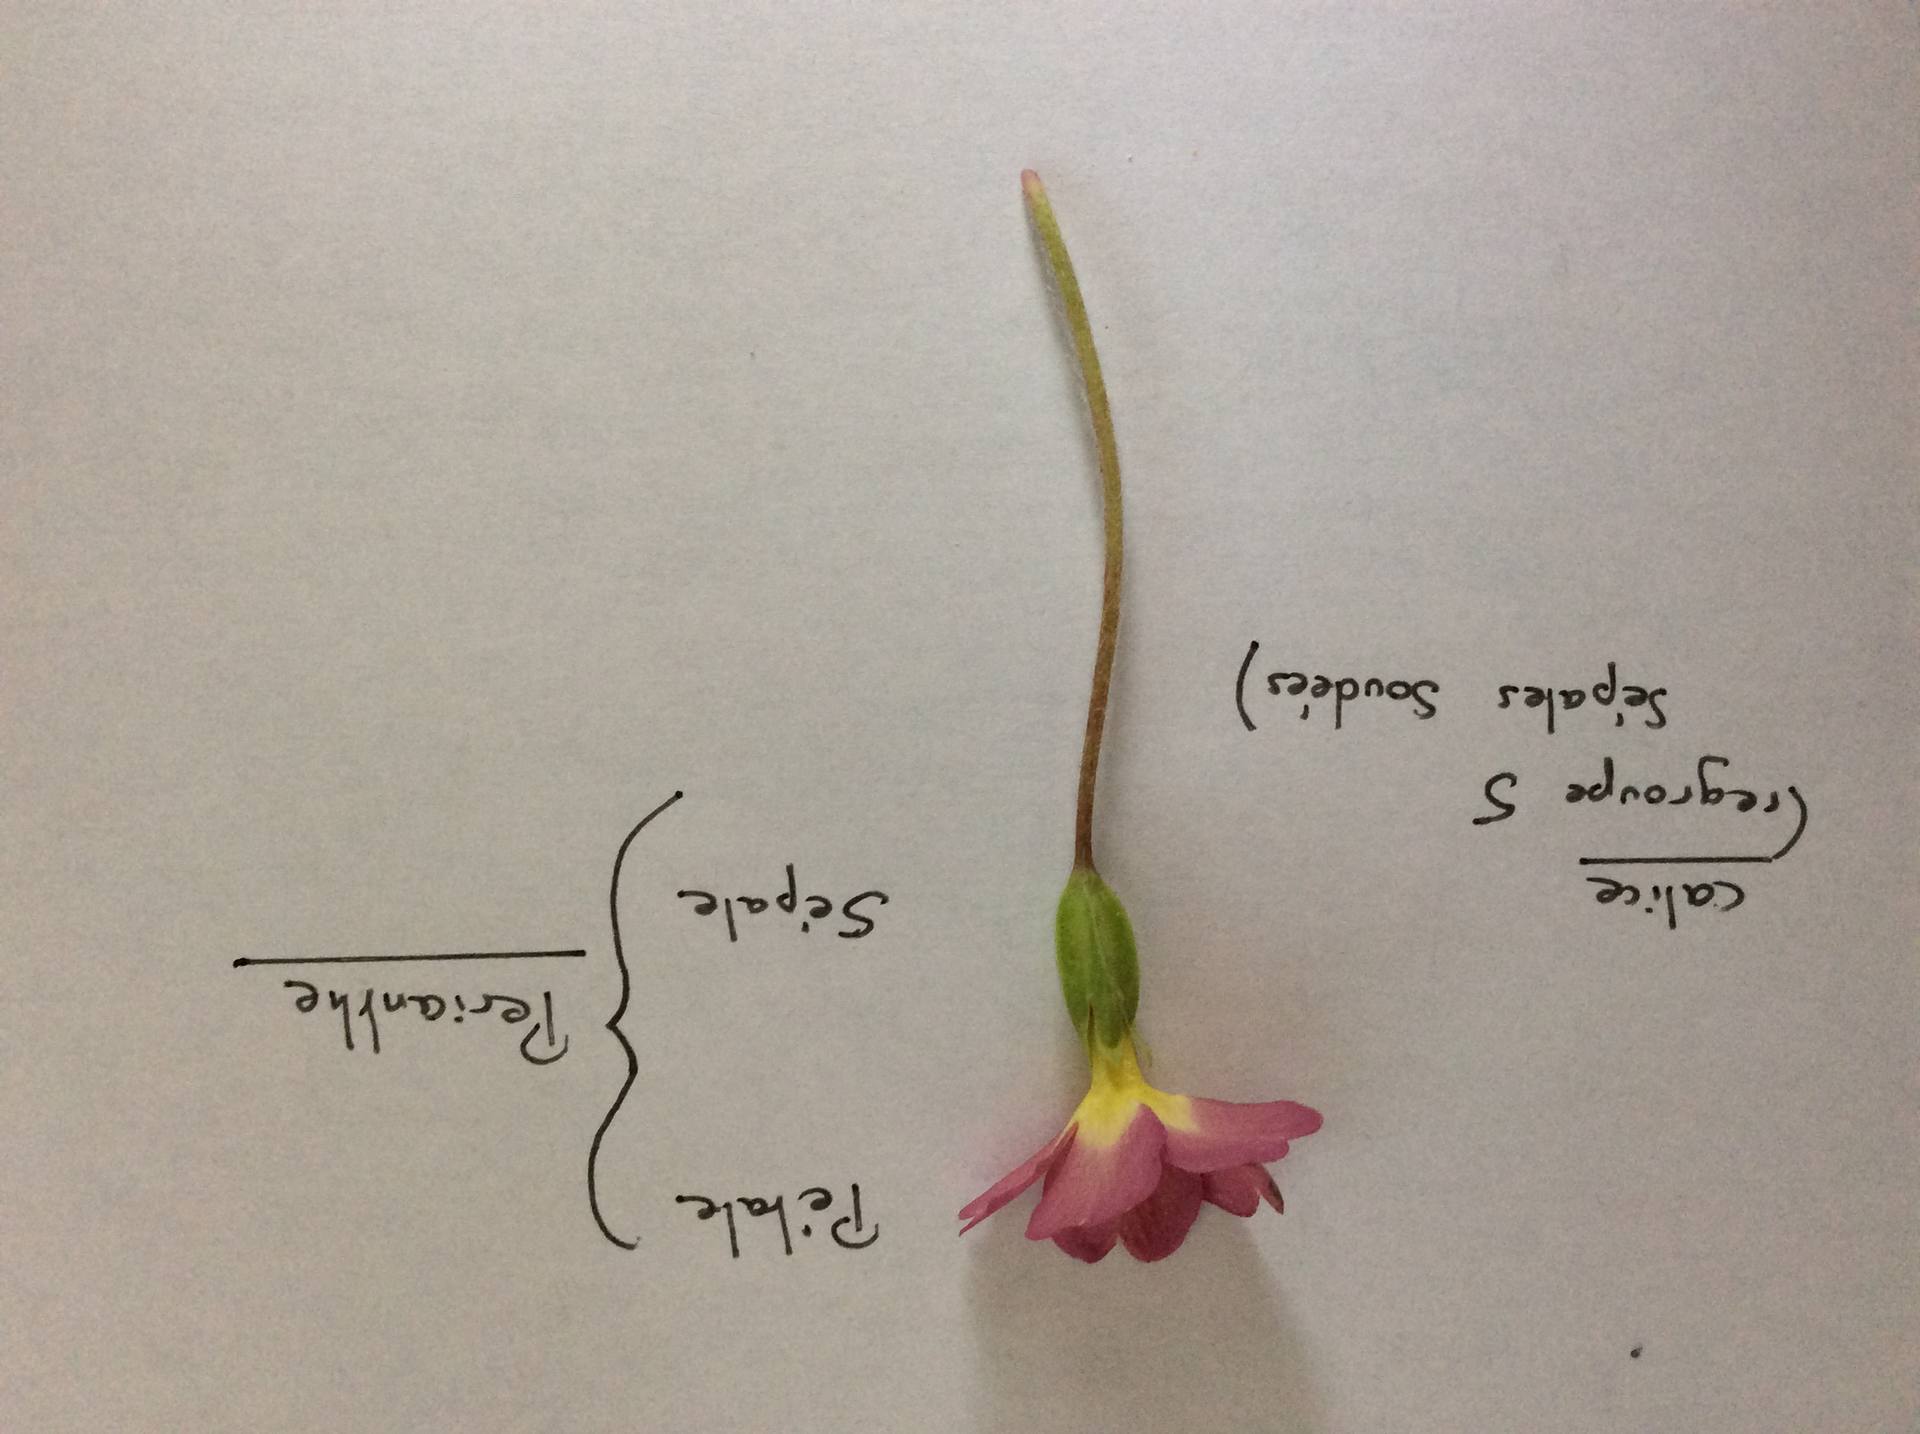 calice
(regroupe 5
Sépales Soudées)
Pétale
Sépale
Perianthe